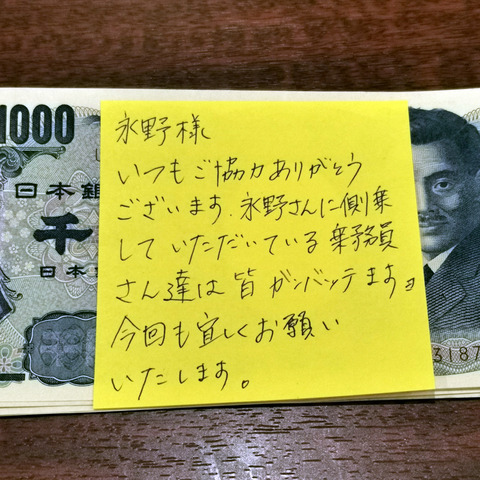 1000
日本銀
千
日本
永野様
いつもご協力ありがとう
ございます、永野さんに側乗
していただいている乗務員
さん達は皆ガンバッテますョ
今回も宜しくお願い
いたします。
3187